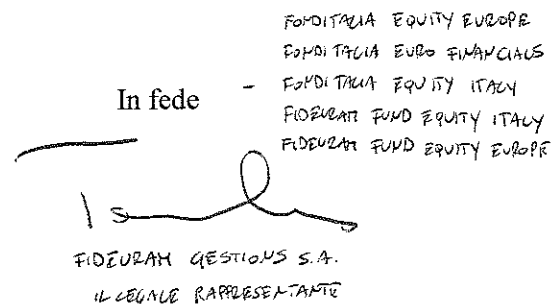 FONDITALIA EQUITY EUROPE
FONDITALIA EURO FINANCIALS
In fede - FONDITALIA EQUITY ITALY
FIDEURAM FUND EQUITY ITALY
FIDEURAM FUND EQUITY EUROPE
FIDEURAM GESTIONS S.A.
IL LEGALE RAPPRESENTANTE